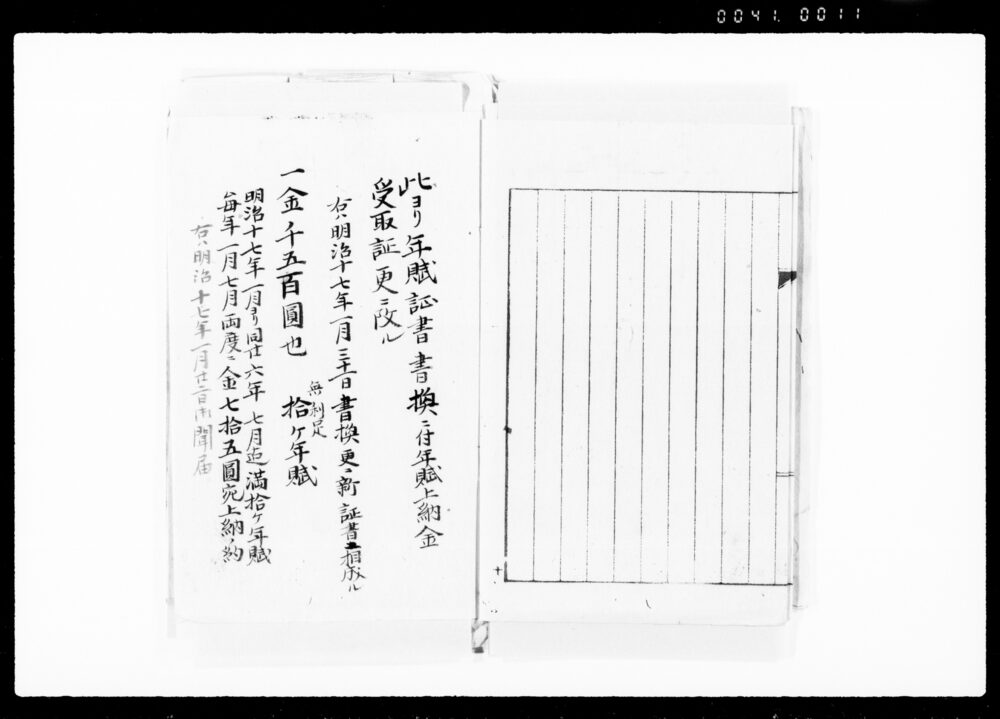 0041. 0011
此ヨリ年賦証書書換ニ付年賦上納金
受取証更ニ改ル
右ハ明治十七年一月三十一日書換更ニ新証書ニ相成ル
一金千五百圓也 無利足 拾ヶ年賦
明治十七年一月ヨリ同廿六年七月迄満拾ヶ年賦
毎年一月七月両度ニ金七拾五圓宛上納ノ約
右ハ明治十七年一月廿二日御聞届